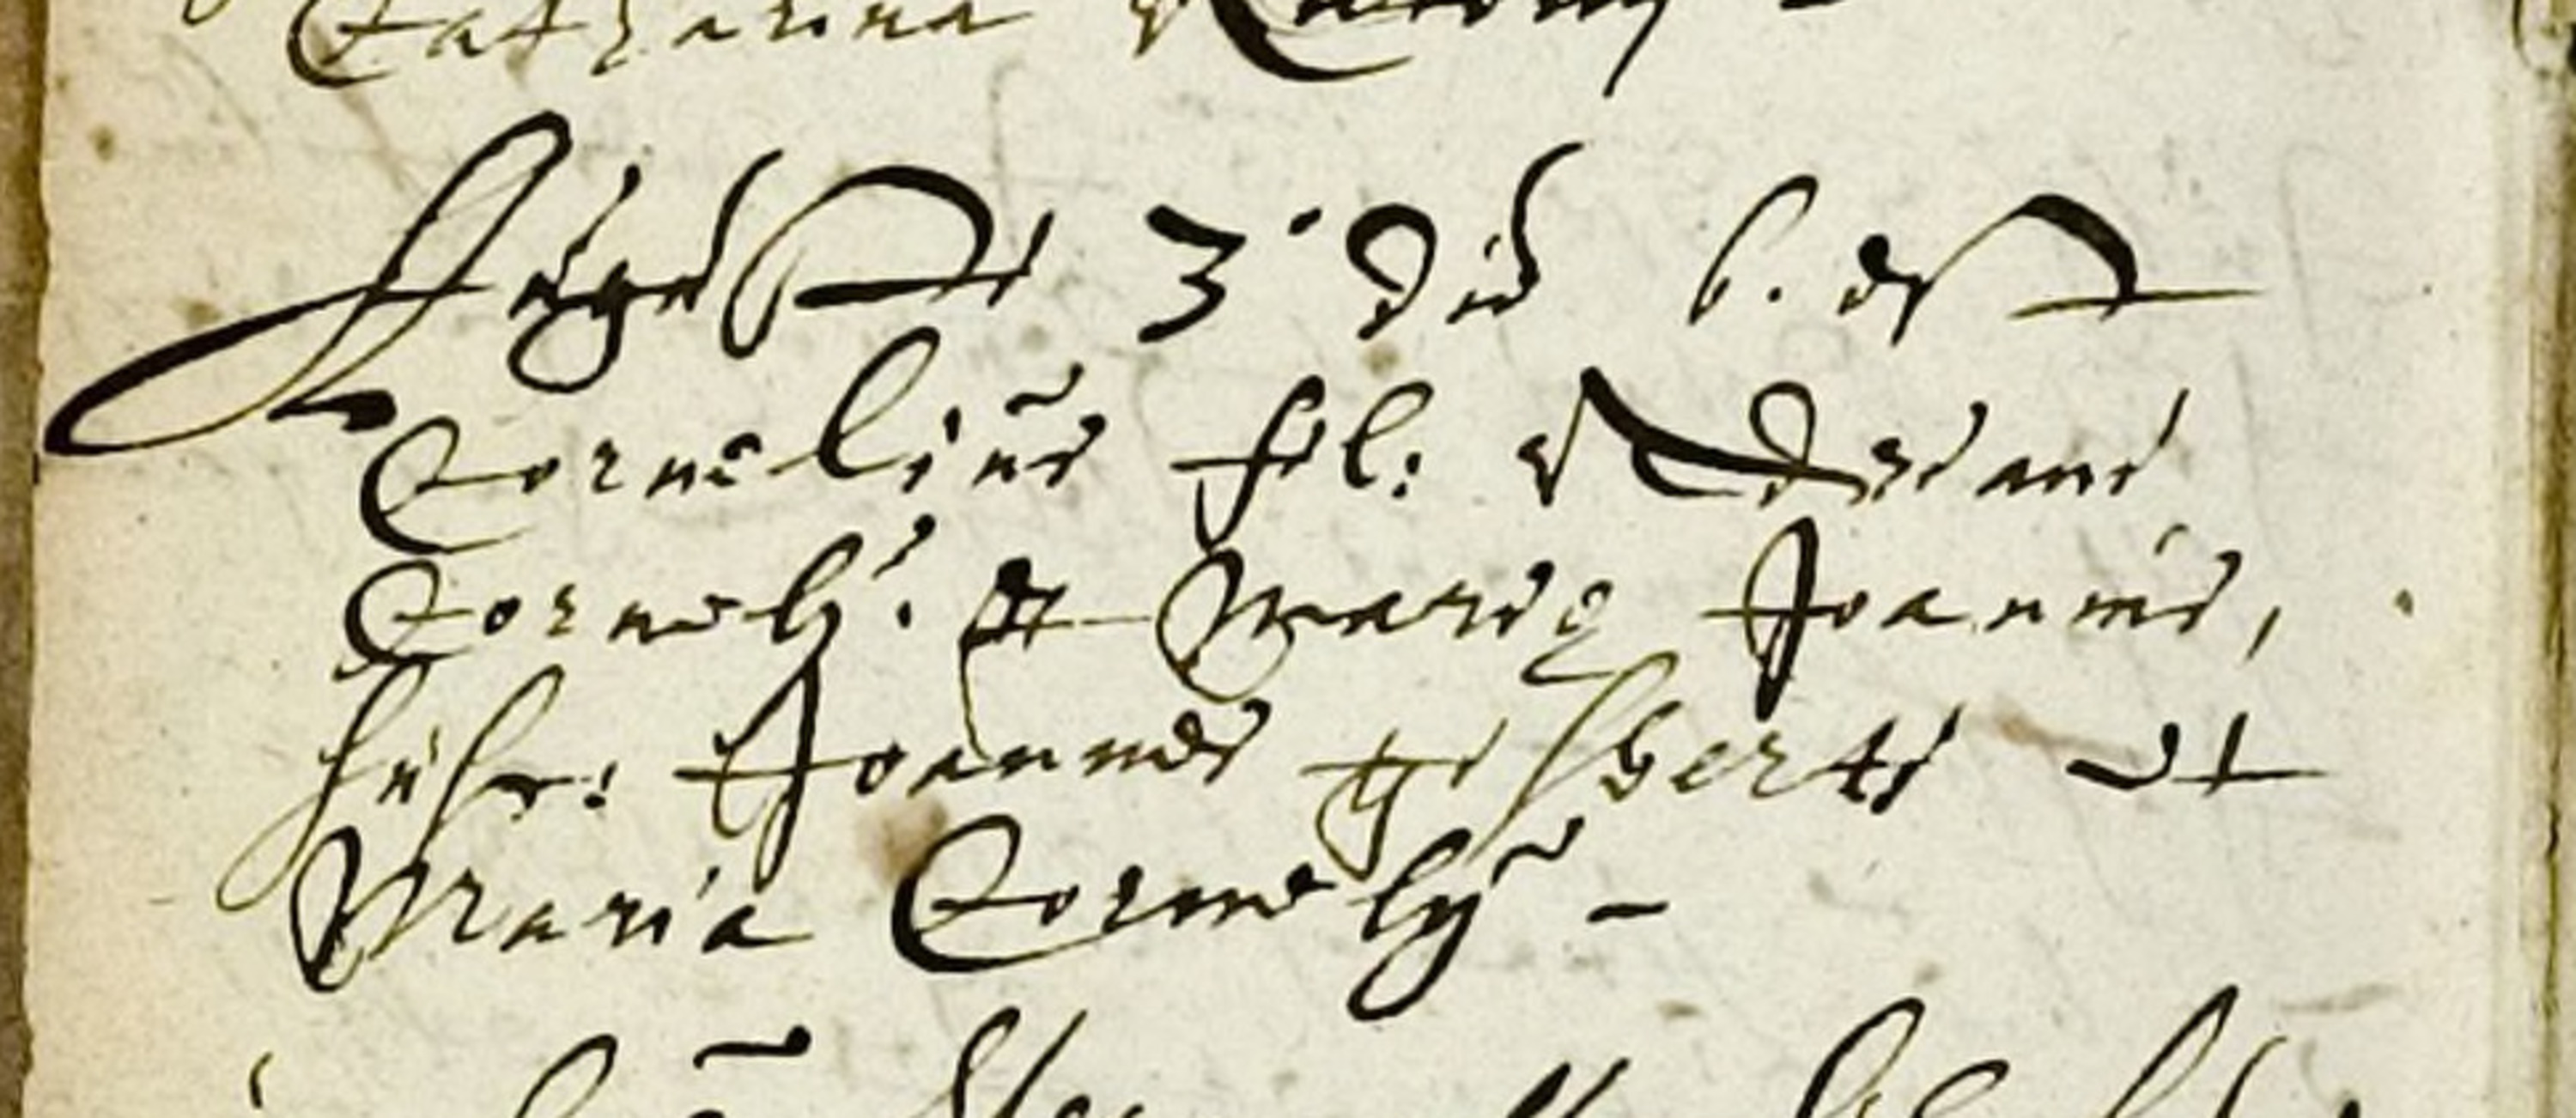 Catharina Antony -
Augusti 3. die b. est
Cornelius fil: Adriani
Cornelij. et Mariæ Joannis,
susc: Joannes Gisberti et
Maria Cornelij -